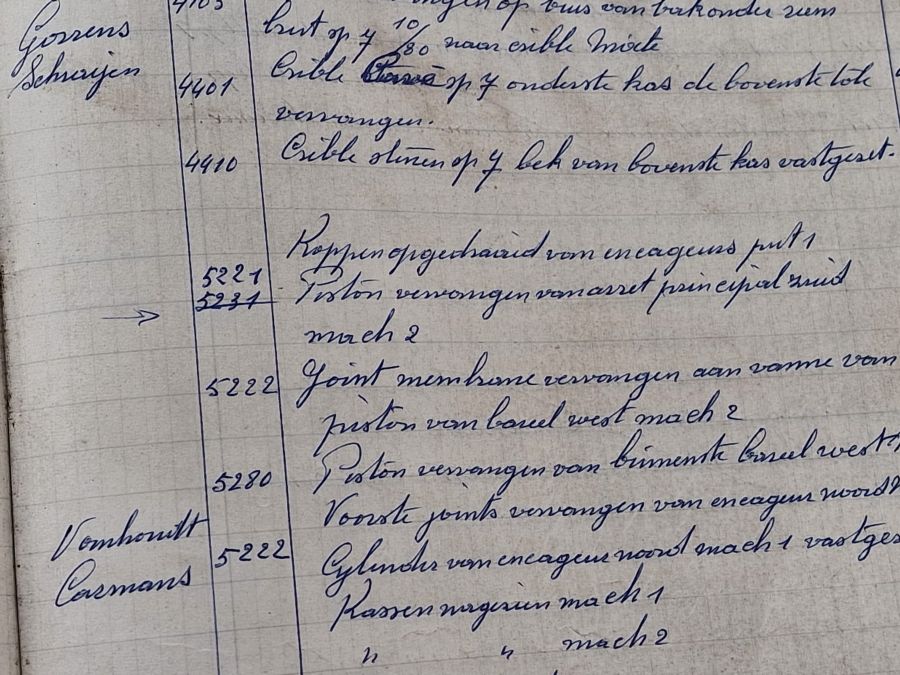 4105 op buis van bak onder riem
Gorrens brut op 7 10/80 naar crible mixte
Schraijen
4401 Crible op 7 onderste kas de bovenste tole
vervangen.
4410 Crible stenen op 7 bek van bovenste kas vastgezet.
Koppen opgedraaid van encageurs put 1
5221
5231 Piston vervangen van arret principal zuid
→ mach 2
5222 Joint membrane vervangen aan vanne van
piston van bareel west mach 2
5280 Piston vervangen van binnenste bareel west
Voorste joints vervangen van encageur noord
Vanhoudt
5222 Cylinder van encageur noord mach 1 vastgez
Carmans
Kassen nagezien mach 1
" " mach 2